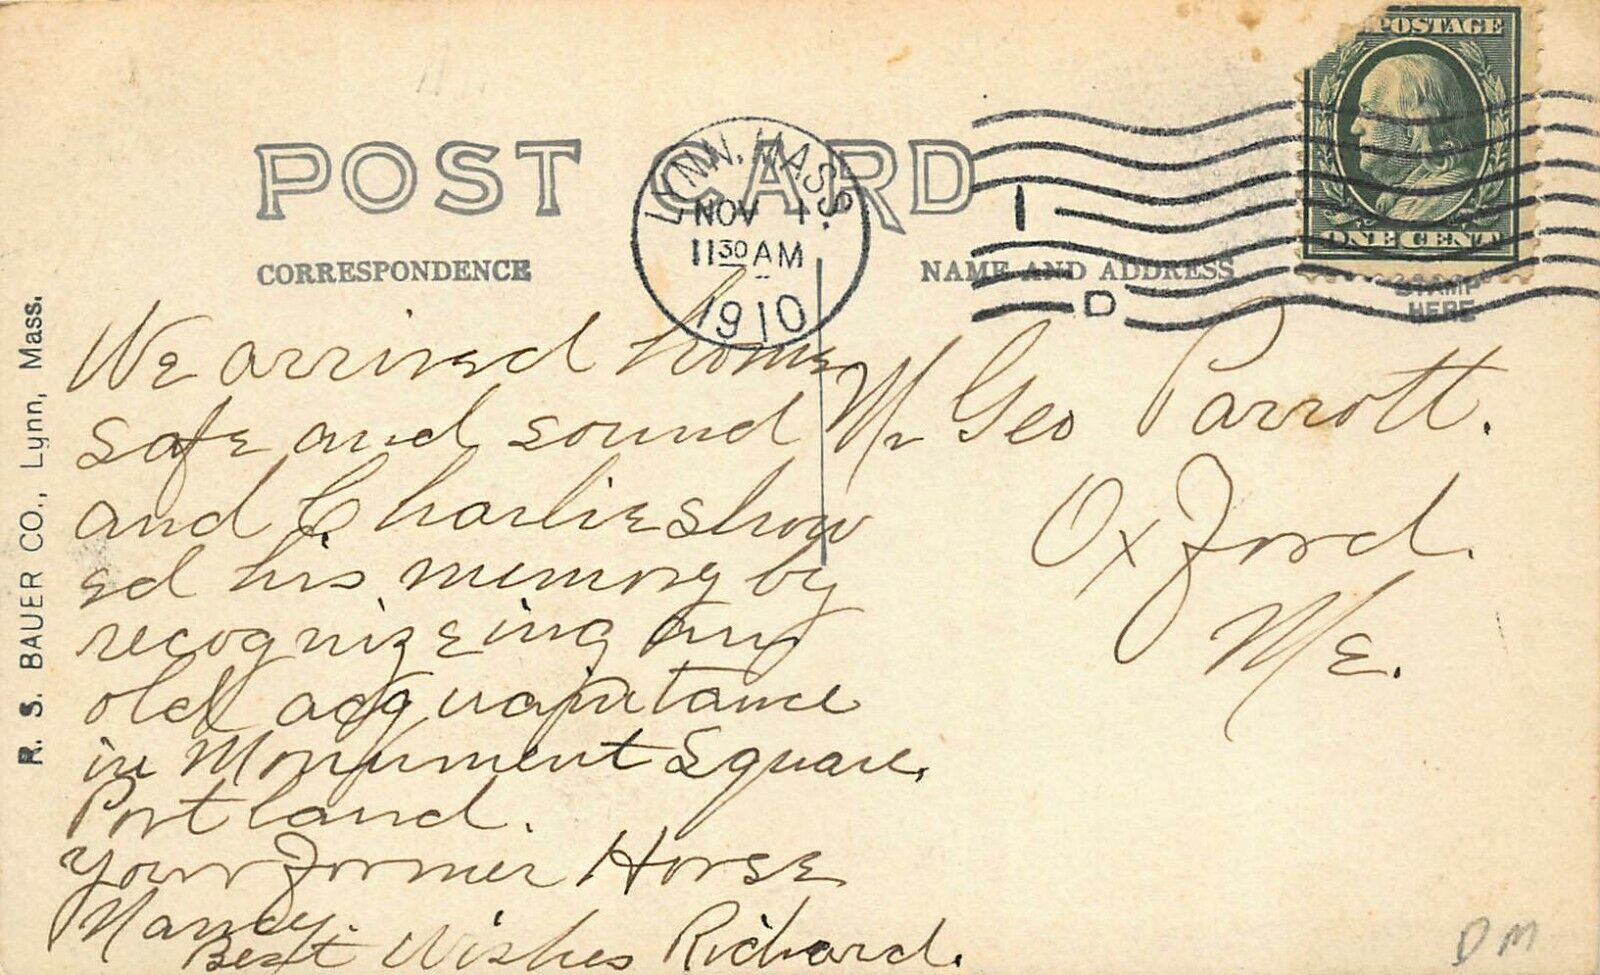 POST CARD
CORRESPONDENCE
NAME AND ADDRESS
LYNN, MASS.
NOV 1
11 30 AM
1910
1
D
POSTAGE
ONE CENT
STAMP
HERE
R. S. BAUER CO., Lynn, Mass.
We arrived home
safe and sound
and Charlie show
ed his memory by
recognizeing an
old acquaintance
in Monument Square,
Portland.
Your Former Horse
Nancy.
Best Wishes Richard.
Mr Geo Parrott.
Oxford.
Me.
DM